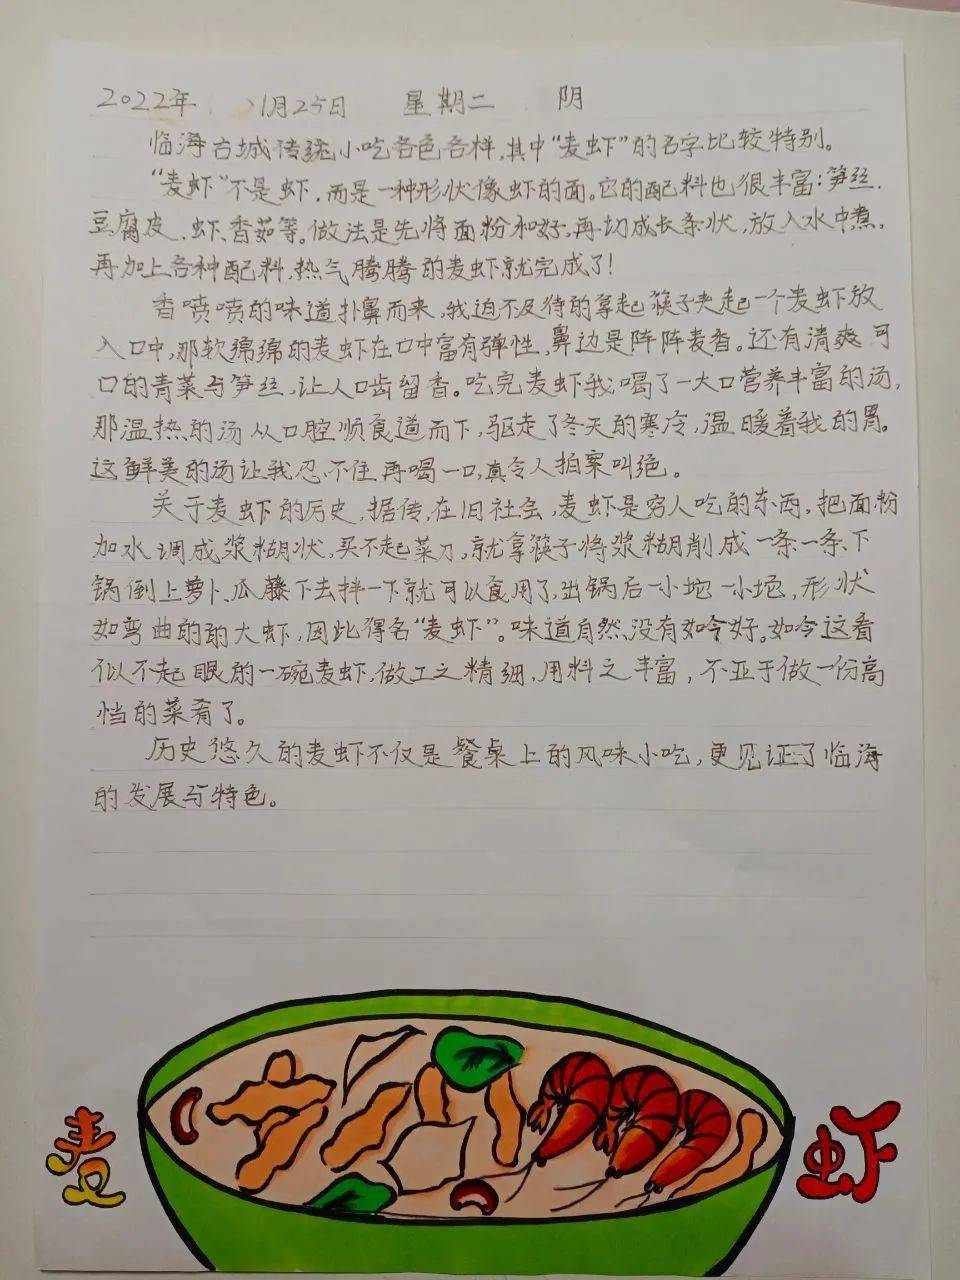 2022年 1月25日 星期二 阴
临海古城传统小吃各色各样,其中“麦虾”的名字比较特别。
“麦虾”不是虾,而是一种形状像虾的面。它的配料也很丰富:笋丝、
豆腐皮、虾、香茹等。做法是先将面粉和好,再切成长条状,放入水中煮,
再加上各种配料,热气腾腾的麦虾就完成了!
香喷喷的味道扑鼻而来,我迫不及待的拿起筷子夹起一个麦虾放
入口中,那软绵绵的麦虾在口中富有弹性,鼻边是阵阵麦香。还有清爽可
口的青菜与笋丝,让人口齿留香。吃完麦虾我喝了一大口营养丰富的汤,
那温热的汤从口腔顺食道而下,驱走了冬天的寒冷,温暖着我的胃。
这鲜美的汤让我忍不住再喝一口,真令人拍案叫绝。
关于麦虾的历史,据传,在旧社会,麦虾是穷人吃的东西,把面粉
加水调成浆糊状,买不起菜刀,就拿筷子将浆糊削成一条一条、下
锅倒上萝卜、瓜藤下去拌一下就可以食用了,出锅后一小坨一小坨,形状
如弯曲的的大虾,因此得名“麦虾”。味道自然没有如今好。如今这看
似不起眼的一碗麦虾,做工之精细,用料之丰富,不亚于做一份高
档的菜肴了。
历史悠久的麦虾不仅是餐桌上的风味小吃,更见证了临海
的发展与特色。
麦虾